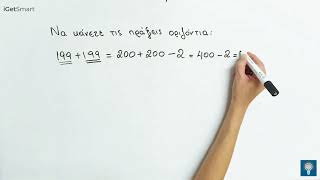 iGetSmart
Να κάνετε τις πράξεις οριζόντια:
199 + 199 = 200 + 200 - 2 = 400 - 2 =